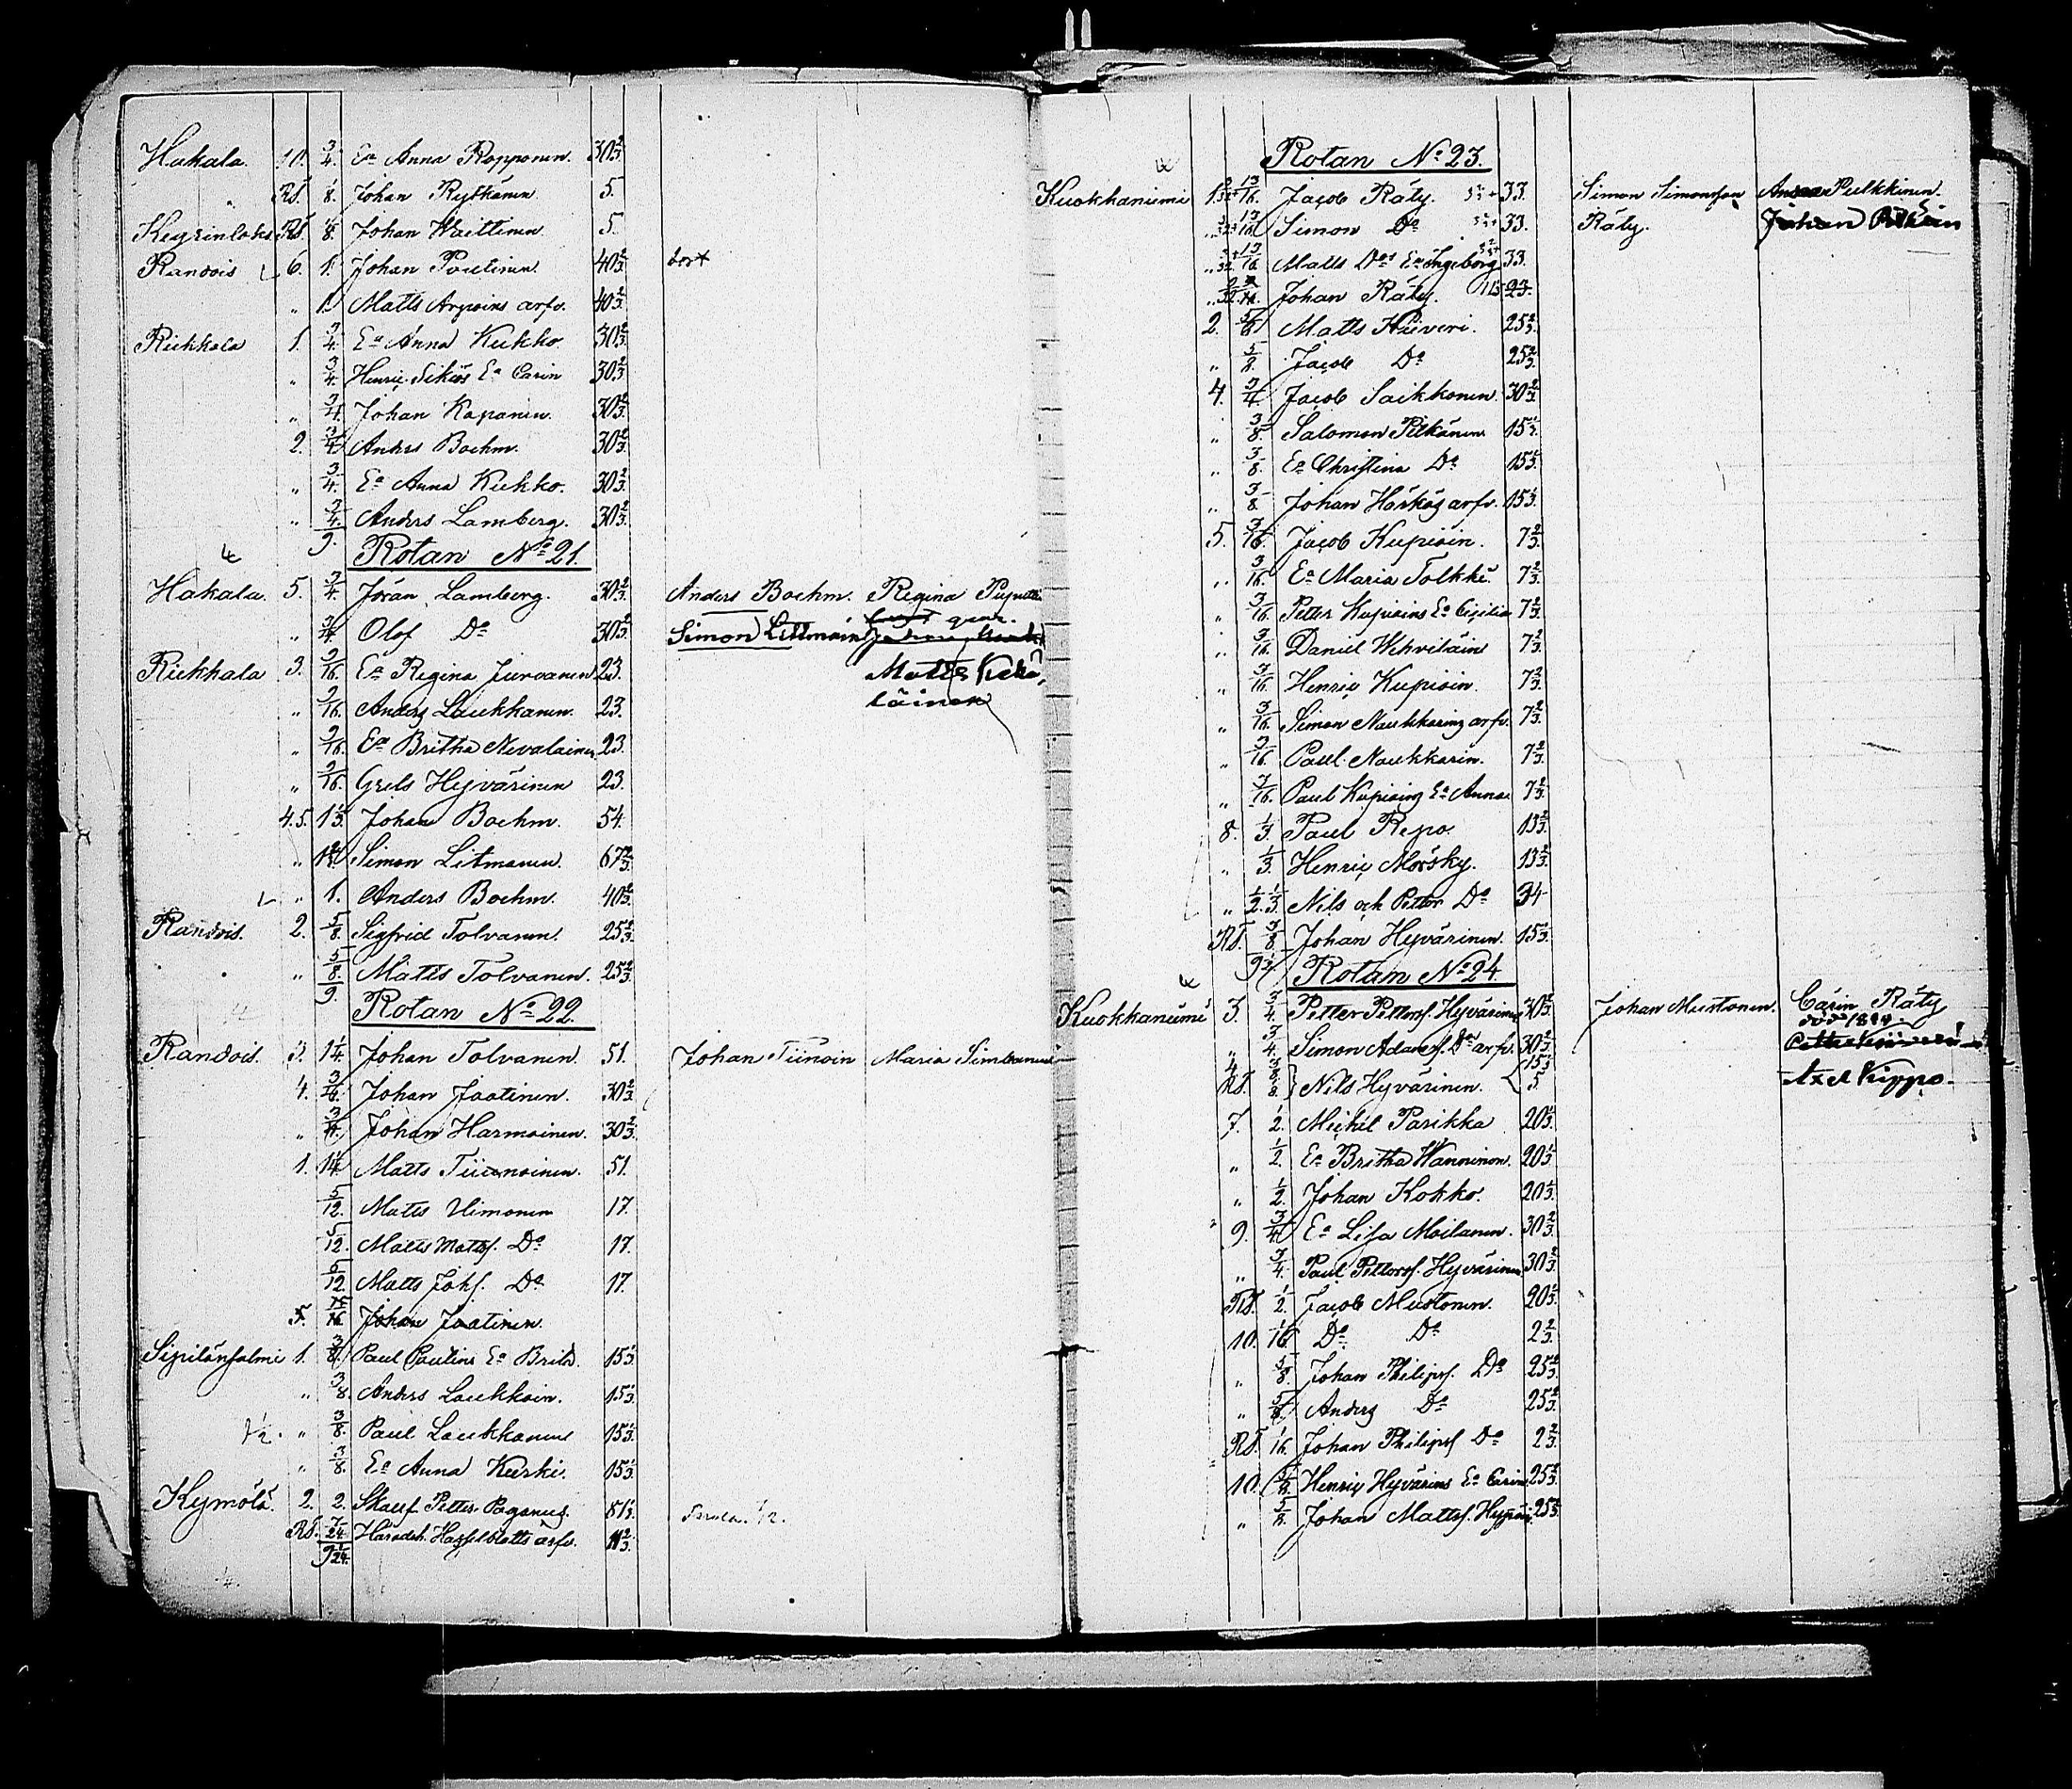 Hakala. 10. 3/4. Ea Anna Ropponen. 30 2/3.
" RT. 1/8. Johan Rytkänen 5.
RT. 1/8. Johan Waittinen 5.
Randois 6. 1. Johan Poutinen. 40 2/3. bort
" 1. Matts Arpoins arfv. 40 2/3.
Rukkala 1. 3/4. Ea Anna Kukko 30 2/3.
" 3/4. Henric Sikiös Ea Carin 30 2/3.
" 3/4. Johan Kapanen. 30 2/3.
2. 3/4. Anders Boehm. 30 2/3.
" 3/4. Ea Anna Kukko. 30 2/3.
" 3/4. Anders Lamberg. 30 2/3.
9. Rotan No 21.
Hakala. 5. 3/4. Jöran Lamberg. 30 2/3. Anders Boehm. Regina
" 3/4. Olof Do 30 2/3. Simon Litmain
qvar.
Rukkala 3. 9/16. Ea Regina Jurvanen 23. Matts Kekä,
" 9/16. Anders Laukkanen. 23. läinen
" 9/16. Ea Britha Nevalainen 23.
" 9/16. Grels Hyvärinen 23.
4.5. 1 1/3. Johan Boehm. 54.
" Simon Litmanen. 67 2/3.
" 1. Anders Boehm. 40 2/3.
Randois. 2. 5/8. Sigfrid Tolvanen. 25 2/3.
" 5/8. Matts Tolvanen. 25 2/3.
9. Rotan No 22.
Randois. 3. 1 1/4. Johan Tolvanen. 51. Johan Tiinoin Maria
4. Johan Jaatinen. 30 2/3.
" 3/4. Johan Harmoinen. 30 2/3.
1. 1 1/4. Matts 51.
5/12. Matts Uimonen 17.
5/12. Matts Mattsf. Do 17.
5/12. Matts Johsf. Do 17.
5. 15/16 Johan Jaatinen.
Sipilänsalmi 1. 3/8. Paul Poutins Ea Brita. 15 1/3.
" 3/8. Anders Laukkain. 15 1/3.
" 3/8. Paul Laukkanen 15 1/3.
" 3/8. Ea Anna Kurki. 15 1/3.
Kymölä. 2. 2. Petter Poganus. 81 1/3.
RT. 7/24. Häradsh. Hasselblatts arfv. 11 2/3.
9 1/24.
Rotan No 23.
Kuokkaniemi 1. 13/16. Jacob Räty. 33. Simon Simonsson Pulkkinen.
" 13/16. Simon Do 33. Räty.
" 13/16. Matts Dos Ea Ingeborg 33.
" Johan Räty.
2. 5/8. Matts Kiiveri. 25 2/3.
" 5/8. Jacob Do 25 2/3.
4. 3/4. Jacob Saikkonen. 30 2/3.
" 3/8. Salomon Pitkänen 15 1/3.
" 3/8. Ea Christina Do 15 1/3.
" 3/8. Johan Harkäs arfv. 15 1/3.
5. 3/16. Jacob Kupiain. 7 2/3.
" 3/16. Ea Maria Tolkki. 7 2/3.
" 3/16. Petter Kupiains Ea Cicilia 7 2/3.
" 3/16. Daniel Wehviläin 7 2/3.
" 3/16. Henric Kupiain. 7 2/3.
" 3/16. Simon Naukkarins arfv. 7 2/3.
" 3/16. Paul Naukkarin. 7 2/3.
" 3/16. Paul Kupiains Ea Anna 7 2/3.
8. 1/3. Paul Repo. 13 2/3.
" 1/3. Henric Mörsky. 13 2/3.
" 1/2. 1/3. Nils och Petter Do 34
RT. 3/8. Johan Hyvärinen. 15 1/3.
Rotan No 24.
Kuokkaniemi 3. 3/4. Petter Pettersf. Hyvärinen 30 2/3. Johan Mustonen. Carin Räty
" 3/4. Simon Adamsf. Dos arfv. 30 2/3. död 1894.
4. 3/8. 15 1/3
RT. 1/8. } Nils Hyvärinen. 5. Axel Kippo.
7. 1/2. Michel Parikka 20 1/3.
" 1/2. Ea Britha Wanninen. 20 1/3.
" 1/2. Johan Kokko. 20 1/3.
9. 3/4. Ea Lisa Moilanen. 30 2/3.
" 3/4. Paul Pettersf. Hyvärinen 30 2/3.
RT. 1/2. Jacob Mustonen. 20 1/3.
10. 1/16. Do Do 2 2/3.
" 5/8. Johan Philipsf. Do 25 2/3.
" 5/8. Anders Do 25 2/3.
RT. 1/16. Johan Philipsf Do 2 2/3.
10. 5/8. Henric Hyvärins Ea Carin 25 2/3.
" 5/8. Johan Mattsf. 25 2/3.